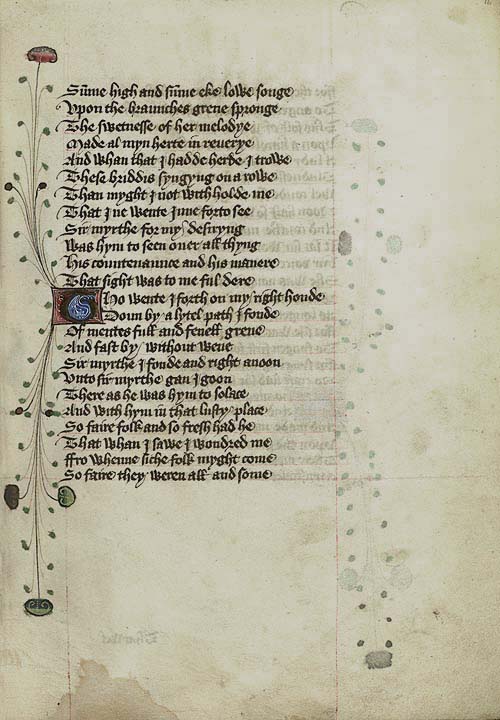 Sume high and sume eke lowe songe
Vpon the braunches grene spronge
The swetnesse of her melodye
Made al myn herte in reverye
And whan that I hadde herde I trowe
These briddis syngyng on a rowe
Than myght I not withholde me
That I ne wente inne forto see
Sir myrthe for my desiryng
Was hym to seen ouer all thyng
His countenaunce and his manere
That sight was to me ful dere
Tho wente I forth on my right honde
Doun by a lytel path I fonde
Of mentes full and fenell grene
And fast by without wene
Sir myrthe I fonde and right anoon
Vnto sir myrthe gan I goon
There as he was hym to solace
And with hym in that lusty place
So faire folk and so fressh had he
That whan I sawe I wondred me
ffro whenne siche folk myght come
So faire they weren all and some